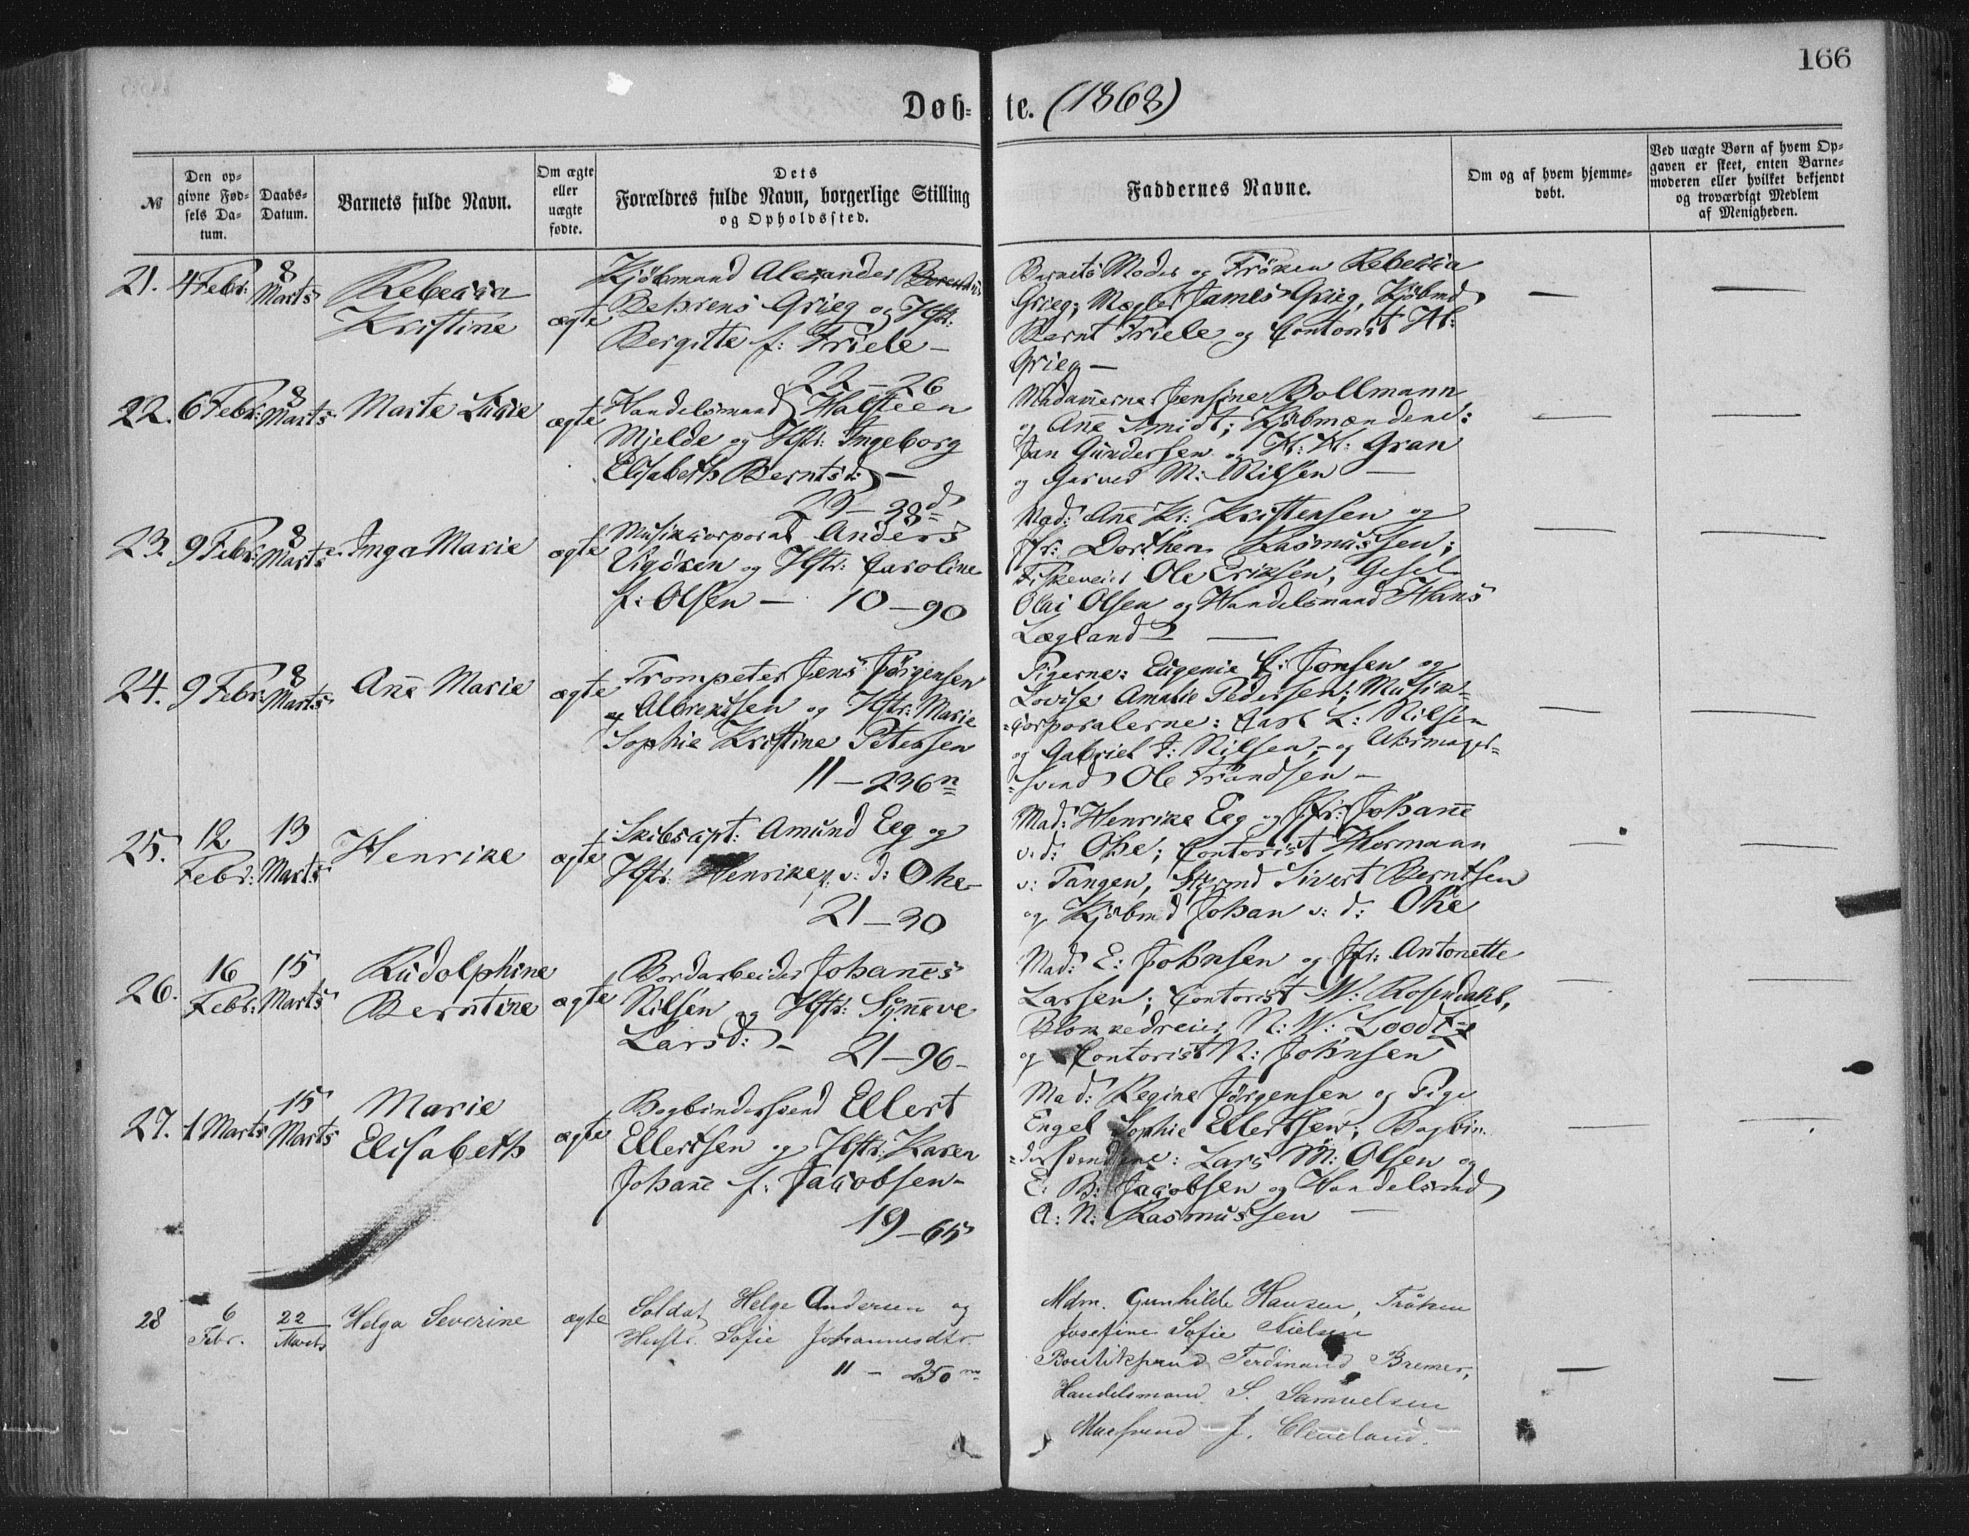 166
Døb= te. (1868)
№
Den op-
givne Fød-
sels Da-
tum.
Daabs-
Datum.
Barnets fulde Navn.
Om ægte
eller
uægte
fødte.
Dets
Forældres fulde Navn, borgerlige Stilling
og Opholdssted.
Faddernes Navne.
Om og af hvem hjemme-
døbt.
Ved uægte Børn af hvem Op-
gaven er skeet, enten Barne-
moderen eller hvilket bekjendt
og troværdigt Medlem
af Menigheden.
21. 4 Febr: 8 Marts
Rebecca
Kristine
ægte
Kjøbmand Alexander
Behrens Grieg og Hstr:
Bergitte f: Friele —
22 — 26
Barnets Moder og Frøken Rebecca
Grieg; Mægler James Grieg, Kjøbmd
Bernt Friele og Contorist
Grieg —
— —
22. 6 Febr: 8 Marts
Marte Lucie
ægte
Handelsmand Halsteen
Mjelde og Hstr: Ingeborg
Elisabeth Berntsd: —
23 — 38d
Madamerne Jensine Bollmann
og Ane Smidt; Kjøbmændene:
Jan Gundersen og K: K: Gran
og Garver M: Nilsen —
— —
23. 9 Febr: 8 Marts
Inga Marie
ægte
Musikcorporal Anders
Vigøren og Hstr: Caroline
f: Olsen — 10 — 90
Mad: Ane Kr: Kristensen og
Jfr: Dorthea Rasmussen;
Fiskeveier Ole Eriksen, Gesel
Olai Olsen og Handelsmand Hans
Lægland —
— —
24. 9 Febr: 8 Marts
Ane Marie
ægte
Trompeter Jens Jørgensen
Albrextsen og Hstr: Marie
Sophie Kristine Petersen
11 — 236n
Pigerne: Eugenie E: Jonsen og
Lovise Amalie Pedersen; Musik-
=corporalerne: Carl L: Nilsen
og Gabriel T: Nilsen, og Uhrmager-
=svend Ole Frandsen —
— —
25. 12 Febr: 13 Marts
Henrike
ægte
Skibscapt: Amund Eeg og
Hstr: Henrike f: v: d: Ohe —
21 — 30
Mad: Henrike Eeg og Jfr: Johane
v: d: Ohe; Contorist Hermann
v: Tangen, Styrmd Sivert Berntsen
og Kjøbmd Johan v: d: Ohe
— —
26. 16 Febr: 15 Marts
Rudolphine
Berntine
ægte
Bordarbeider Johanes
Nilsen og Hstr: Syneve
Larsd: — 21 — 96 —
Mad: E: Johnsen og Jfr: Antonette
Larsen; Contorist W: Rosendahl,
Blokkedreier N: W: Loodtz
og Contorist N: Johnsen
— —
27. 1 Marts 15 Marts
Marie
Elisabeth
ægte
Bogbindersvend Ellert
Ellertsen og Hstr: Karen
Johane f: Jacobsen —
19 — 65
Mad: Regine Jørgensen og Pige
Engel Sophie Ellertsen; Bogbin-
=dersvendene: Lars M: Olsen og
E: B: Jacobsen og Handelsmd
A: N: Rasmussen —
— —
28 6 Febr. 22 Marts
Helga Severine
ægte
Soldat Helge Andersen og
Hustr. Sofie Johannesdtr.
11 — 250 no
Mdm. Gunhilde Hansen, Frøken
Josefine Sofie Nielsen
Boutiksvend Ferdinand Bremer,
Handelsmand S. Samuelsen
J. Cleveland.
— —